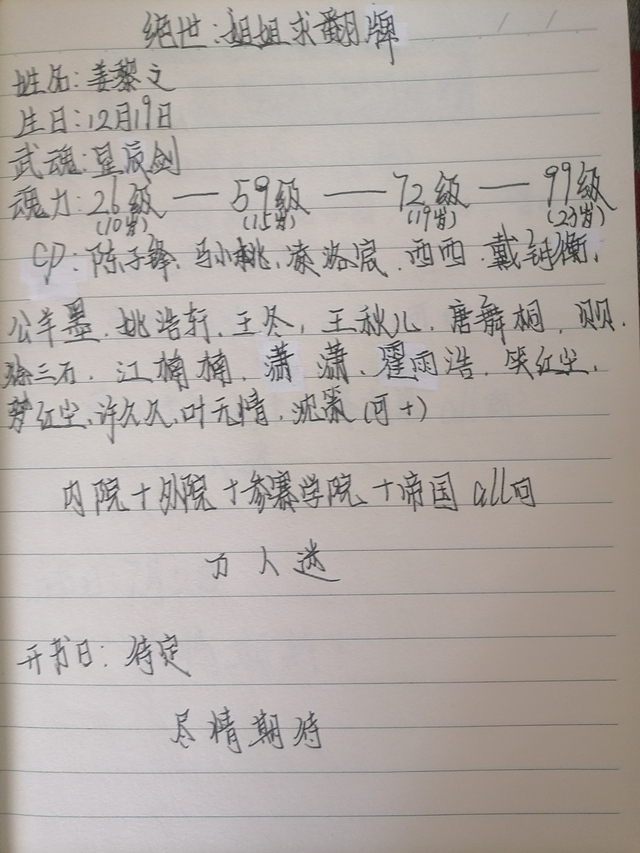 绝世:姐姐求翻牌
姓名:姜黎文
生日:12月19日
武魂:星辰剑
魂力:26级 — 59级 — 72级 — 99级
(10岁) (15岁) (19岁) (23岁)
CP:陈子锋、马小桃、凌落宸、西西、戴钥衡、
公羊墨、姚浩轩、王冬、王秋儿、唐舞桐、贝贝、
徐三石、江楠楠、潇潇、霍雨浩、笑红尘、
梦红尘、许久久、叶无情、沈策(可+)
内院+外院+参赛学院+帝国all向
万人迷
开书日:待定
尽情期待